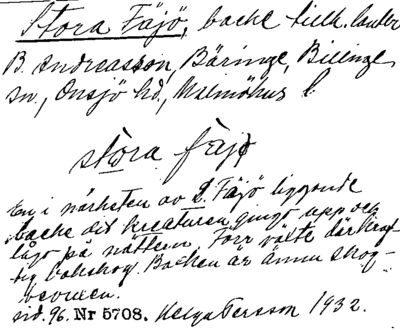 Stora Fäjö, backe tillh. lantbr
B. Andreasson, Bäringe, Billinge
sn., Onsjö hd., Malmöhus l.
stora fäjö
En i närheten av L. Fäjö liggande
backe dit kreaturen gingo upp och
lågo på nätterna. Förr växte där kraf-
tig bokskog. Backen är ännu skog-
bevuxen.
sid. 96. Nr 5708. Helga Persson 1932.